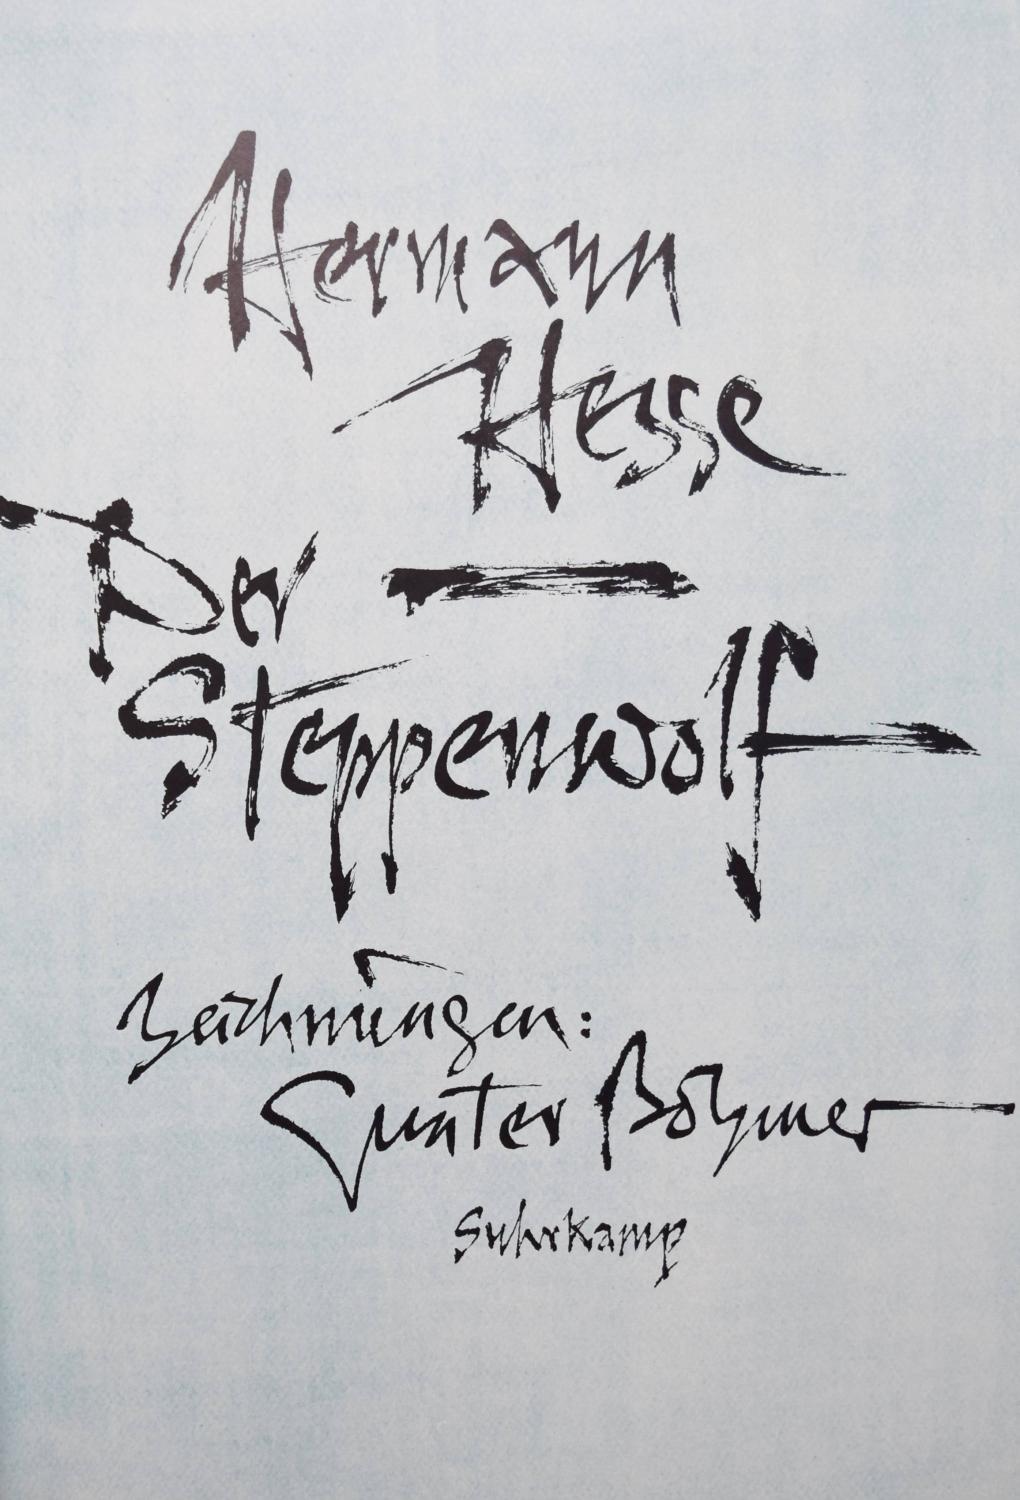 Hermann
Hesse
Der
Steppenwolf
Zeichnungen:
Gunter Böhmer
Suhrkamp